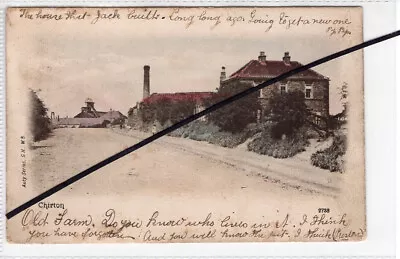 The house that Jack built. Long long ago. Going to get a new one
Auty Series. S.H. W.B
Chirton
2758
Old Farm. Do you know who lives in it. I think
you have forgotten. And you will know the pit. I think